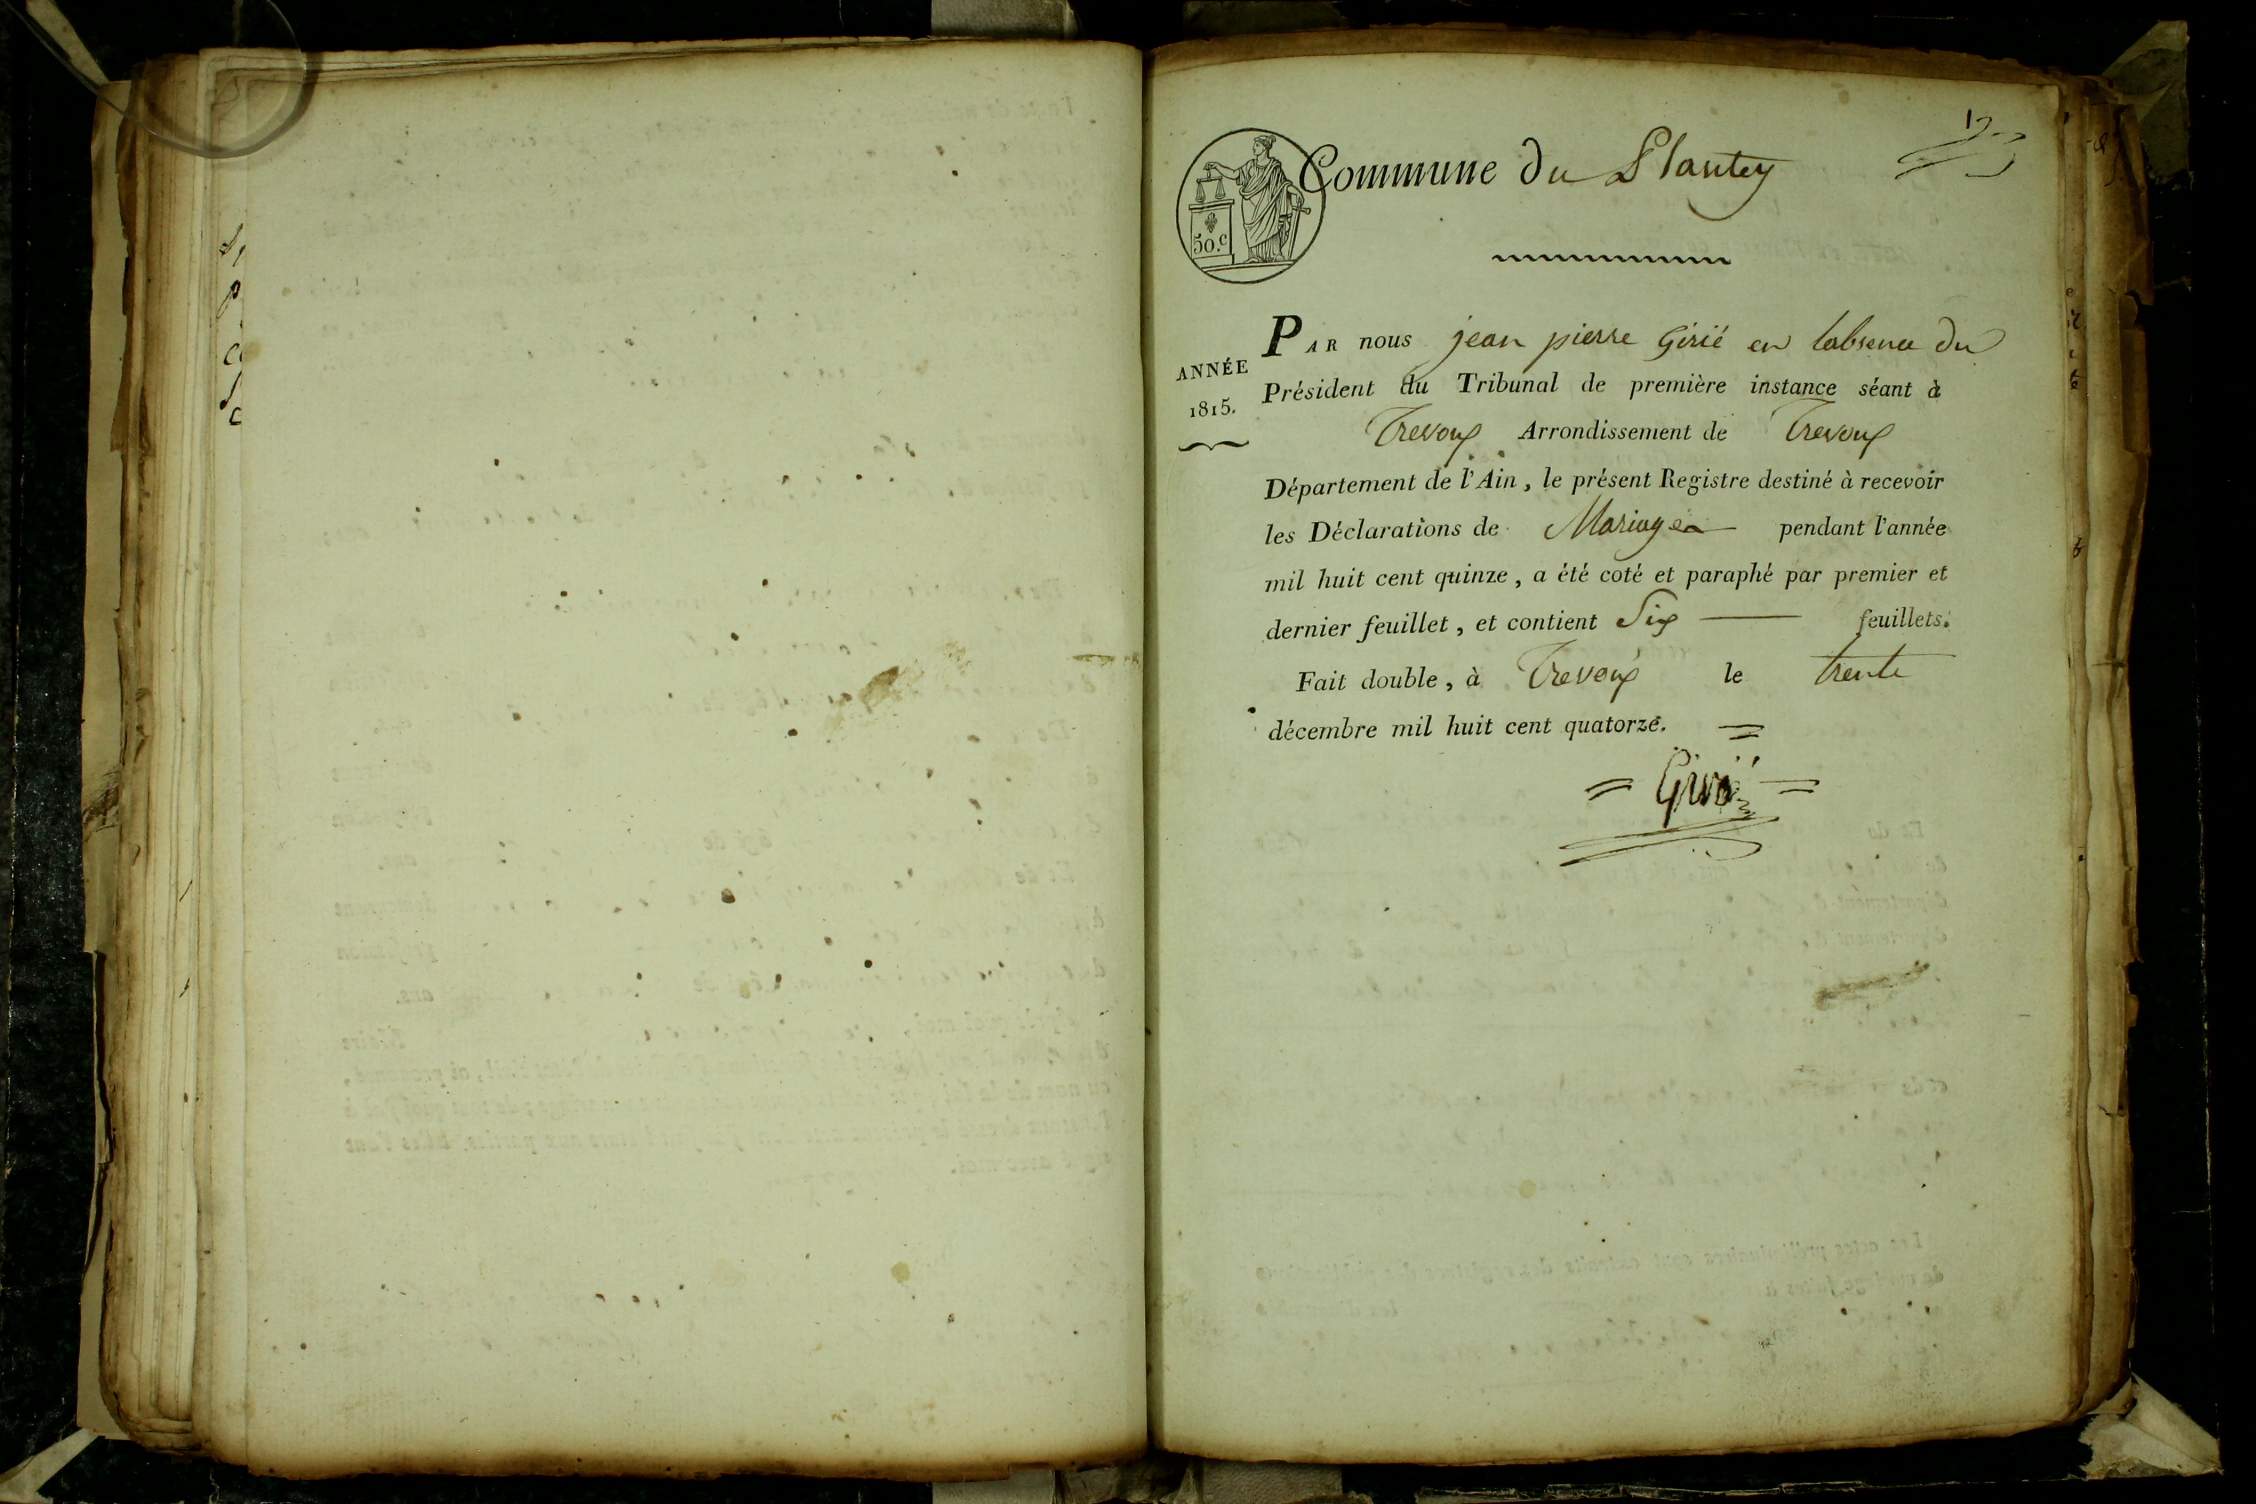 Commune du Plantey
50.c
ANNÉE
1815.
PAR nous jean pierre Girié en labsence du
Président du Tribunal de première instance séant à
Trevoux Arrondissement de Trevoux
Département de l'Ain, le présent Registre destiné à recevoir
les Déclarations de Mariages pendant l'année
mil huit cent quinze, a été coté et paraphé par premier et
dernier feuillet, et contient Six feuillets.
Fait double, à Trevoux le trente
décembre mil huit cent quatorze.
Girié